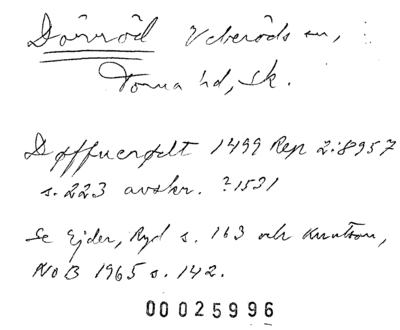 Dörröd Veberöds sn,
Torna hd, Sk.
Døffuerødt 1499 Rep 2:8957
s. 223 avskr. ?1531
Se Ejder, Ryd s. 163 och Knutson,
NoB 1965 s. 142.
00025996